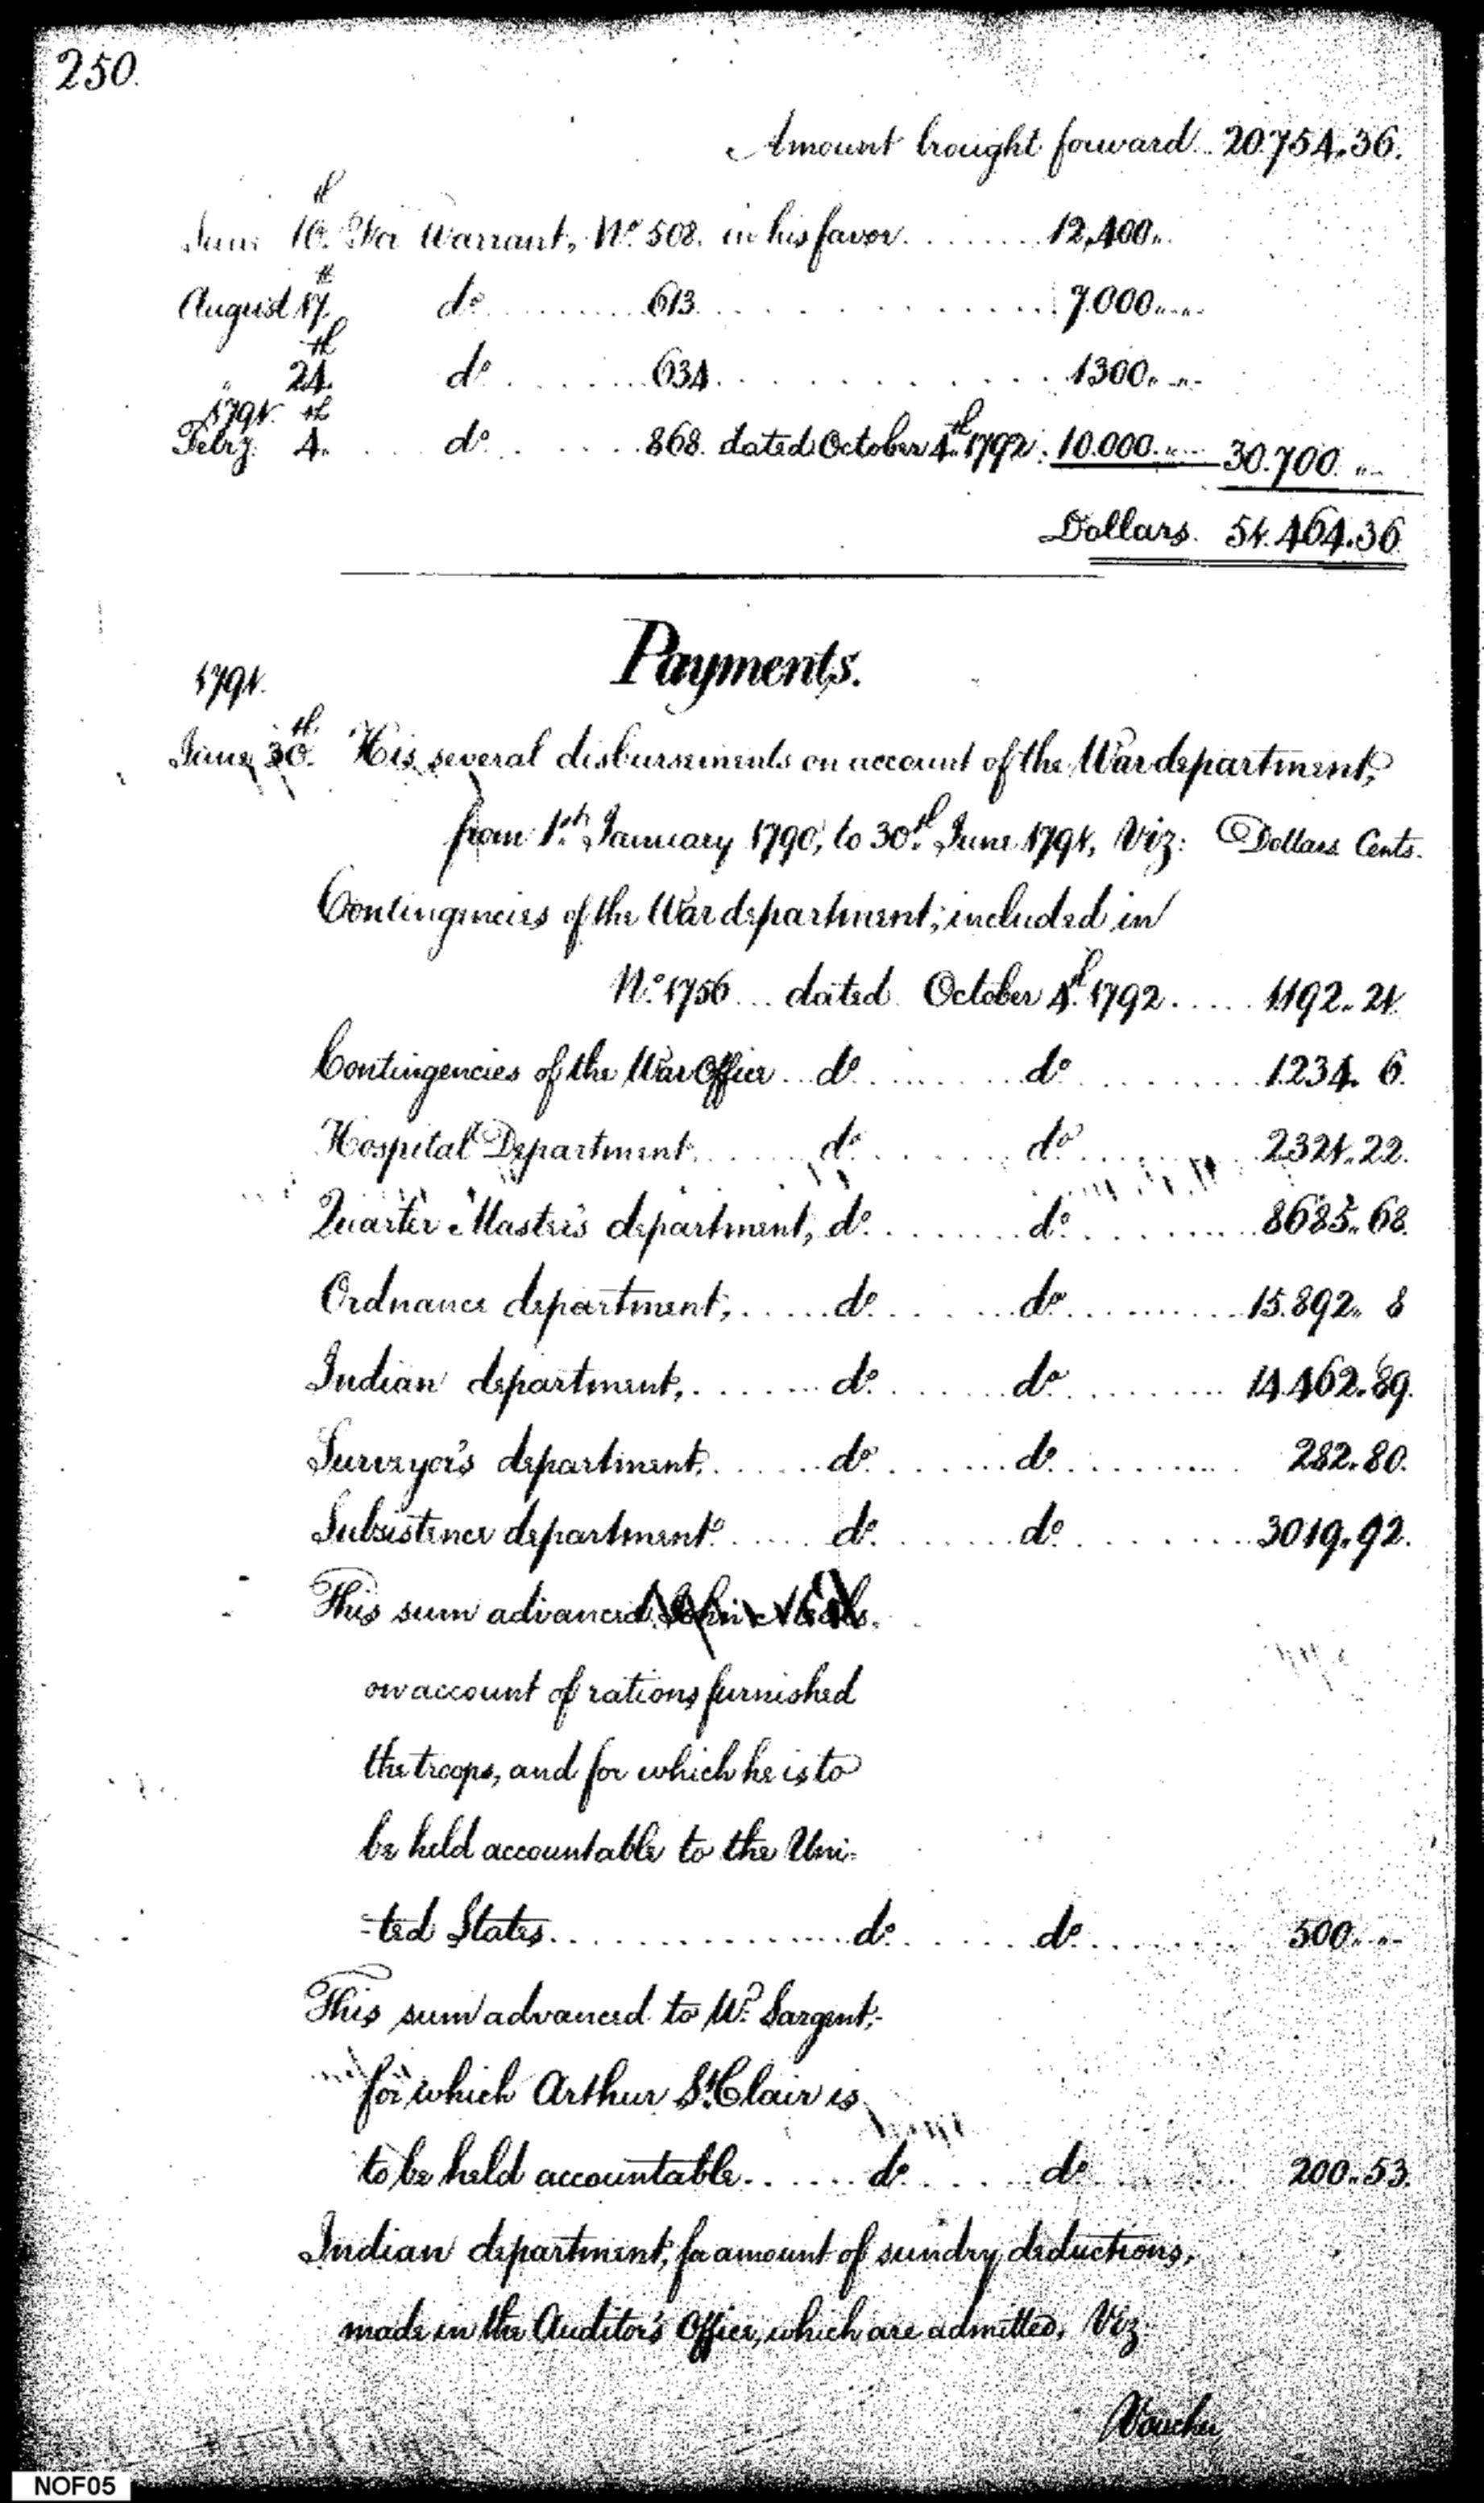 250.
Amount brought forward .. 20.754.36.
June 10.th Per Warrant, No. 508. in his favor. ....... 12,400..
August 17th do ....... 613. ............ 7.000....
" 24.th do ....... 634. ............ 1300....
1791.
Feby. 4.th ... do ...... 868. dated October 4.th 1792. 10.000.... 30.700. "
Dollars. 51.464.36
Payments.
1791.
June 30.th His several disbursements on account of the War department,
from 1.st January 1790, to 30.th June 1791, Viz: Dollars Cents.
Contingencies of the War department; included in
No. 1756 ... dated October 4.th 1792. .... 1192.. 21.
Contingencies of the War Office ... do ....... do ......... 1.234. 6.
Hospital Department. ...... do ....... do ....... 2321..22.
Quarter Master's department, do ....... do ........ 8685..68.
Ordnance department, ..... do ...... do ......... 15.892.. 8
Indian department, ....... do ...... do ........ 14.462.89.
Surveyor's department. ..... do ...... do ........ 282..80.
Subsistence department. ..... do ...... do ....... 3019.92.
This sum advanced
on account of rations furnished
the troops, and for which he is to
be held accountable to the Uni-
-ted States. .............. do ...... do ....... 500....
This sum advanced to W. Sargent,
for which Arthur St. Clair is
to be held accountable. ..... do ..... do ...... 200..53.
Indian department, for amount of sundry deductions,
made in the Auditor's Office, which are admitted, Viz.
Voucher
NOF05